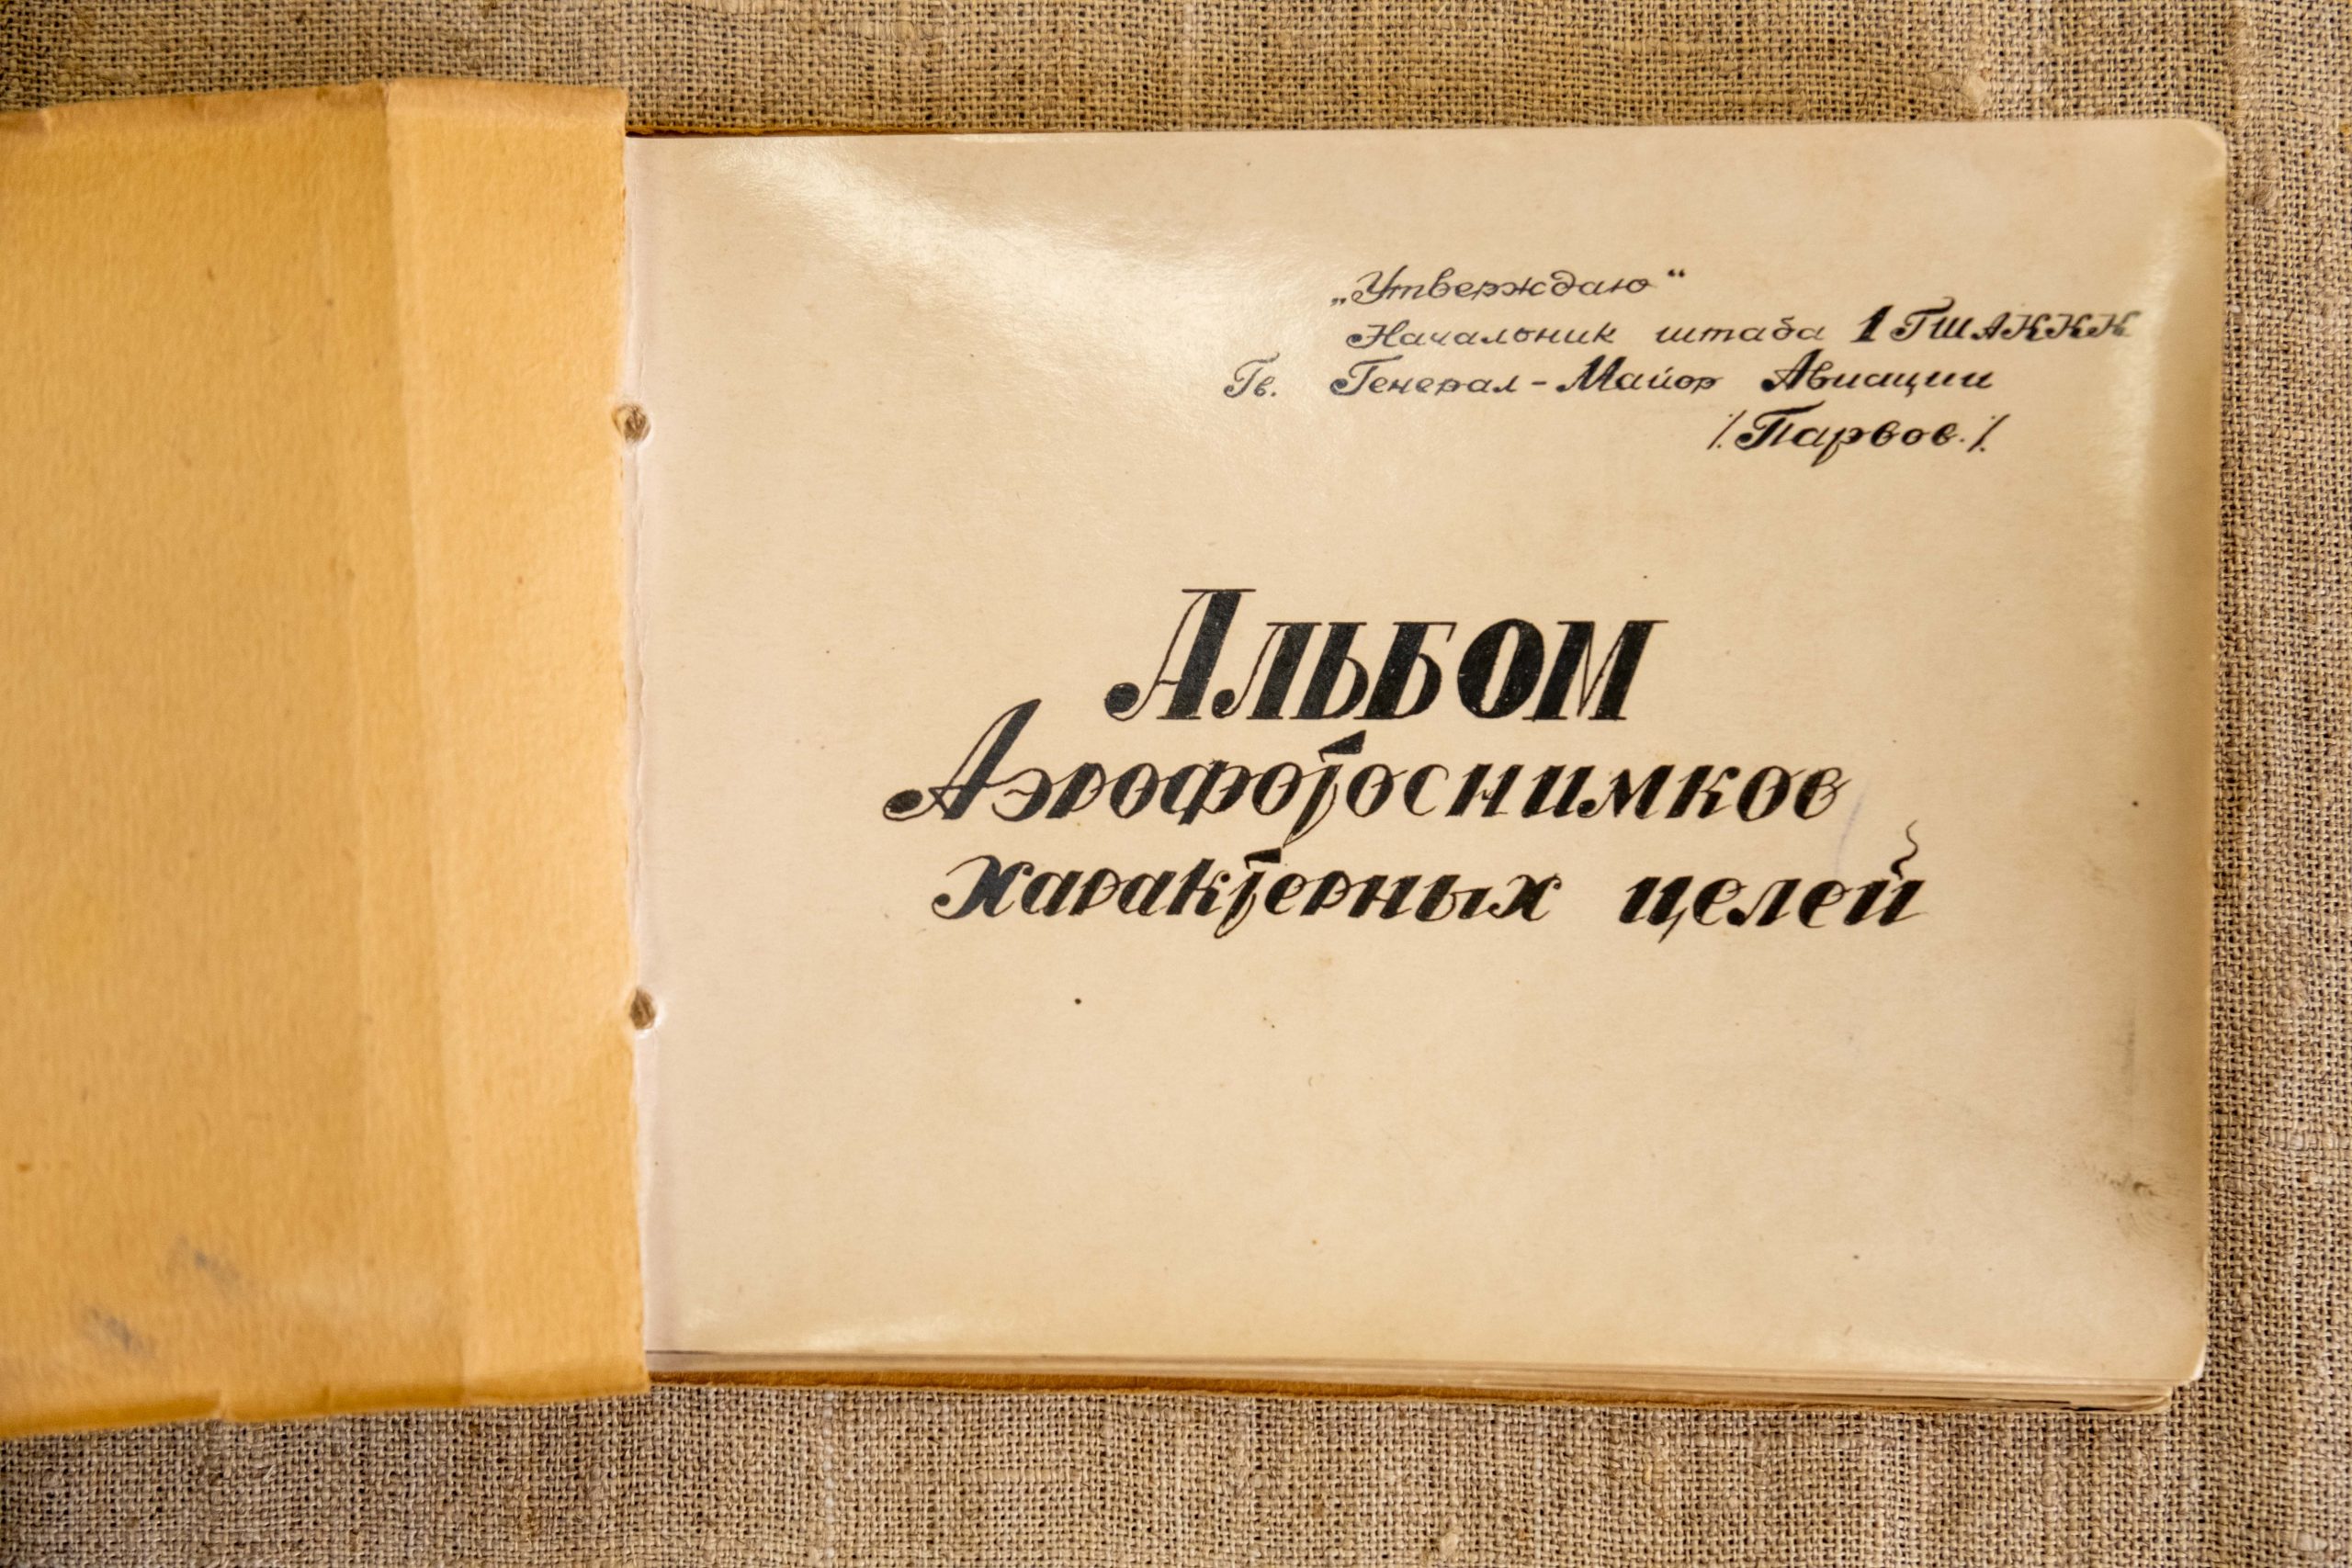 „Утверждаю“
Начальник штаба 1 ГШАККК
Гв. Генерал-Майор Авиации
/.Парвов./.
Альбом
Аэрофотоснимков
характерных целей